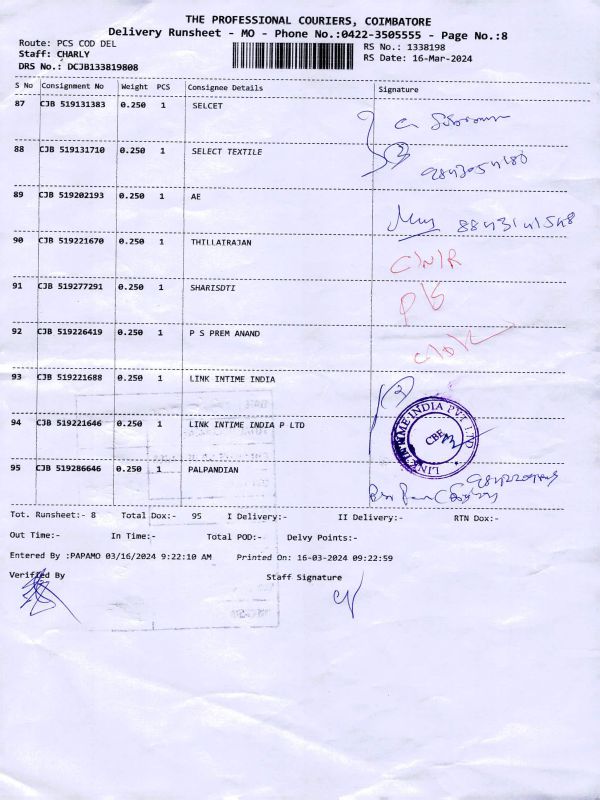 THE PROFESSIONAL COURIERS, COIMBATORE
Delivery Runsheet - MO - Phone No.:0422-3505555 - Page No.:8
Route: PCS COD DEL
RS No.: 1338198
Staff: CHARLY
RS Date: 16-Mar-2024
DRS No.: DCJB133819808
S No Consignment No Weight PCS Consignee Details Signature
87 CJB 519131383 0.250 1 SELCET
88 CJB 519131710 0.250 1 SELECT TEXTILE
89 CJB 519202193 0.250 1 AE
90 CJB 519221670 0.250 1 THILLAIRAJAN
91 CJB 519277291 0.250 1 SHARISDTI
92 CJB 519226419 0.250 1 P S PREM ANAND
93 CJB 519221688 0.250 1 LINK INTIME INDIA
94 CJB 519221646 0.250 1 LINK INTIME INDIA P LTD
LINK INTIME INDIA PVT. LTD
CBE
95 CJB 519286646 0.250 1 PALPANDIAN
Tot. Runsheet:- 8 Total Dox:- 95 I Delivery:- II Delivery:- RTN Dox:-
Out Time:- In Time:- Total POD:- Delvy Points:-
Entered By :PAPAMO 03/16/2024 9:22:10 AM Printed On: 16-03-2024 09:22:59
Verified By Staff Signature